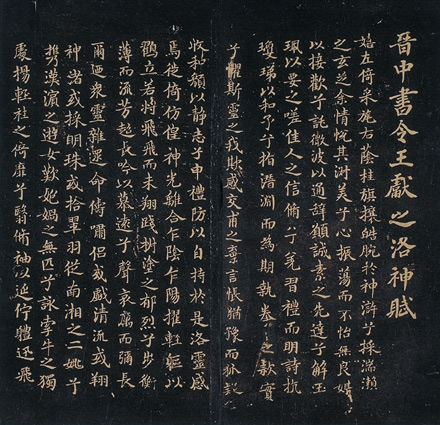 晉中書令王獻之洛神賦
嬉左倚采旄右蔭桂旗攘皓腕於神滸兮採湍瀨
之玄芝余情悅其淑美兮心振蕩而不怡無良媒
以接歡兮託微波以通辭願誠素之先達兮解玉
珮以要之嗟佳人之信脩兮羌習禮而明詩抗
瓊珶以和予兮指潛淵而為期執眷眷之款實
兮懼斯靈之我欺感交甫之棄言悵猶豫而狐疑
收和顏以靜志兮申禮防以自持於是洛靈感
焉徙倚仿偟神光離合乍陰乍陽擢輕軀以
鶴立若將飛而未翔踐椒塗之郁烈兮步衡
薄而流芳超長吟以慕遠兮聲哀厲而彌長
爾迺衆靈雜遝命儔嘯侶或戲清流或翔
神渚或採明珠或拾翠羽從南湘之二姚兮
攜漢濱之遊女歎媧之無匹兮詠牽牛之獨
處揚輕袿之倚靡兮翳脩袖以延佇體迅飛